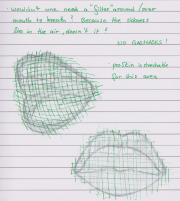 wouldn't one need a "filter" around / over
mouth to breath? Because the sickness
lies in the air, doesn't it?
NO GASMASKS!
- proskin is stretchable
for this area